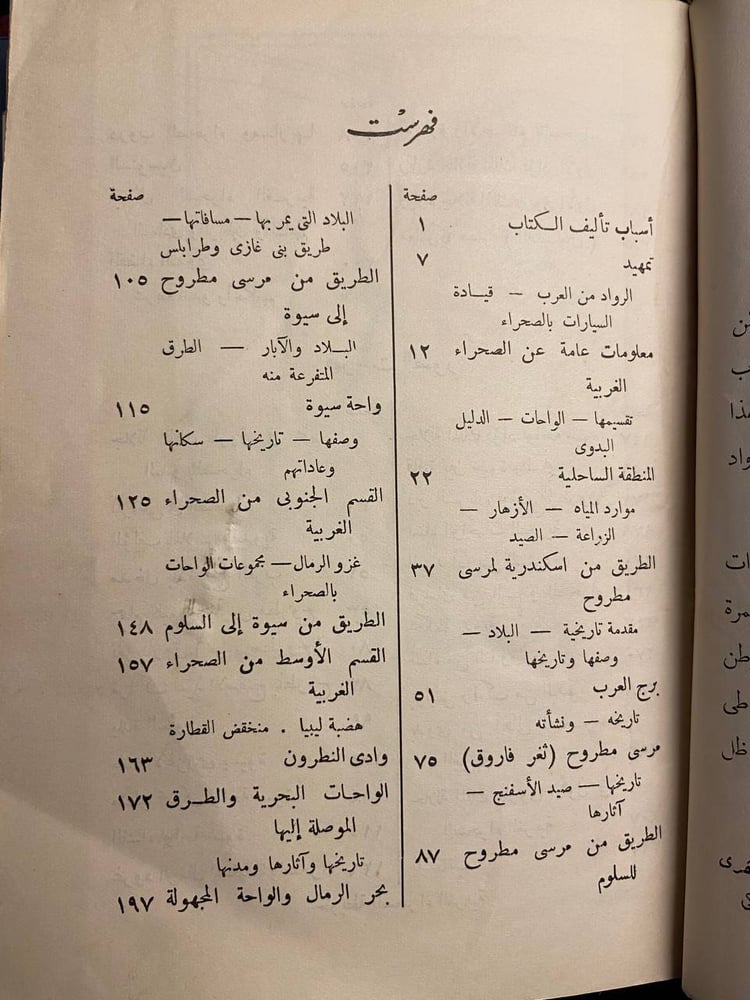 فهرست
صفحة
أسباب تأليف الكتاب ١
تمهيد ٧
الرواد من العرب — قيادة
السيارات بالصحراء
معلومات عامة عن الصحراء ١٢
الغربية
تقسيمها — الواحات — الدليل
البدوى
المنطقة الساحلية ٢٢
موارد المياه — الأزهار —
الزراعة — الصيد
الطريق من اسكندرية لمرسى ٣٧
مطروح
مقدمة تاريخية — البلاد —
وصفها وتاريخها
برج العرب ٥١
تاريخه — ونشأته
مرسى مطروح (ثغر فاروق) ٧٥
تاريخها — صيد الأسفنج —
آثارها
الطريق من مرسى مطروح ٨٧
للسلوم
صفحة
البلاد التى يمر بها — مسافاتها —
طريق بنى غازى وطرابلس
الطريق من مرسى مطروح ١٠٥
إلى سيوة
البلاد والآبار — الطرق
المتفرعة منه
واحة سيوة ١١٥
وصفها — تاريخها — سكانها
وعاداتهم
القسم الجنوبى من الصحراء ١٢٥
الغربية
غزو الرمال — مجموعات الواحات
بالصحراء
الطريق من سيوة إلى السلوم ١٤٨
القسم الأوسط من الصحراء ١٥٧
الغربية
هضبة ليبيا . منخفض القطارة
وادى النطرون ١٦٣
الواحات البحرية والطرق ١٧٢
الموصلة إليها
تاريخها وآثارها ومدنها
بحر الرمال والواحة المجهولة ١٩٧